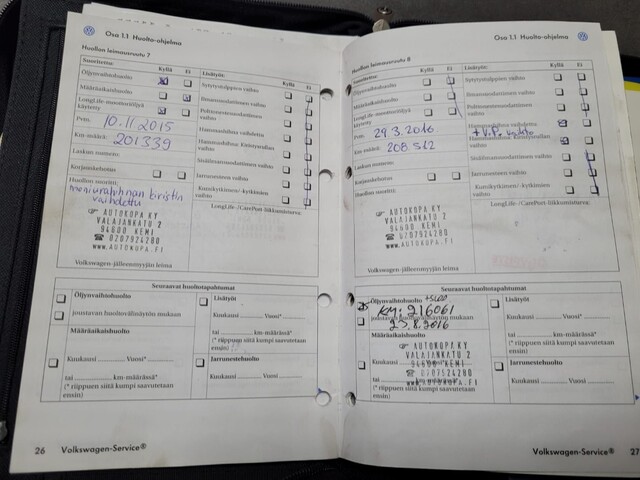 Osa 1.1 Huolto-ohjelma
Huollon leimausruutu 7
Suoritettu:
Kyllä
Ei
Lisätyöt:
Kyllä
Ei
Öljynvaihtohuolto
Sytytystulppien vaihto
Määräaikaishuolto
Ilmansuodattimen vaihto
LongLife-moottoriöljyä
käytetty
Polttonesuodattimen
vaihto
Pvm.
10.11.2015
Hammashihna vaihdettu
Km-määrä:
201339
Hammashihnan Kiristysrullan
vaihto
Laskun numero:
Sisäilmansuodattimen vaihto
Korjauskehoitus
Jarrunesteen vaihto
Huollon suoritti:
Kytkinkitkan/-kytkinten
vaihto
vaihdettu
LongLife-/CarePort-liikkumisturva:
AUTOKOPA KY
VALAJANKATU 2
94600 KEMI
☎ 0207924280
www.AUTOKOPA.FI
Volkswagen-jälleenmyyjän leima
Seuraavat huoltotapahtumat
Öljynvaihtohuolto
joustavan huoltovälinäytön mukaan
Määräaikaishuolto
Kuukausi
Vuosi*
tai
km-määrässä*
(* riippuen siitä kumpi saavutetaan
ensin)
Lisätyöt
Kuukausi
Vuosi
tai
km-määrässä*
(* riippuen siitä kumpi saavutetaan
ensin)
Jarrunestehuolto
Kuukausi
Vuosi
26
Volkswagen-Service®
Osa 1.1 Huolto-ohjelma
Huollon leimausruutu 8
Suoritettu:
Kyllä
Ei
Lisätyöt:
Kyllä
Ei
Öljynvaihtohuolto
Sytytystulppien vaihto
Määräaikaishuolto
Ilmansuodattimen vaihto
LongLife-moottoriöljyä
käytetty
vaihto
Pvm.
29.3.2016
Hammashihna vaihdettu
Km-määrä:
208512
vaihto
Laskun numero:
Sisäilmansuodattimen vaihto
Korjauskehoitus
Jarrunesteen vaihto
Huollon suoritti:
vaihto
LongLife-/CarePort-liikkumisturva:
AUTOKOPA KY
VALAJANKATU 2
94600 KEMI
☎ 0207924280
www.AUTOKOPA.FI
Volkswagen-jälleenmyyjän leima
Seuraavat huoltotapahtumat
Öljynvaihtohuolto
KM: 216061
joustavan huoltovälinäytön mukaan
23.8.2016
Määräaikaishuolto
AUTOKOPA KY
VALAJANKATU 2
94600 KEMI
☎ 0207924280
www.AUTOKOPA.FI
Kuukausi
Vuosi*
tai
km-määrässä*
(* riippuen siitä kumpi saavutetaan
ensin)
Lisätyöt
Kuukausi
Vuosi
tai
km-määrässä*
(* riippuen siitä kumpi saavutetaan
ensin)
Jarrunestehuolto
Kuukausi
Vuosi
Volkswagen-Service®
27